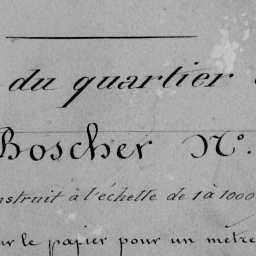 du quartier
Boscher N°.
nstruit à l'échelle de 1 à 1000
ur le papier pour un mètre